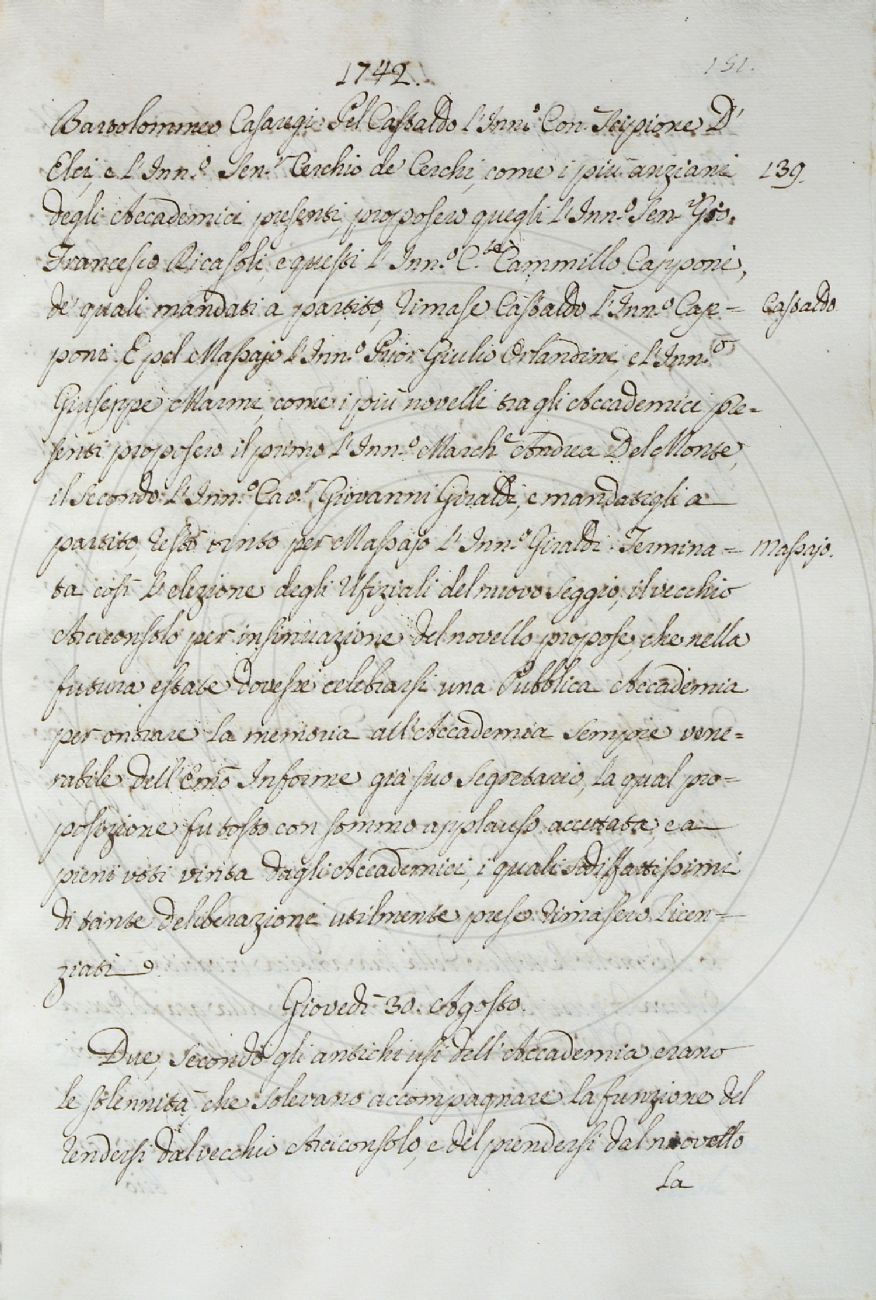 151.
1742.
Bartolommeo Casaregi. Pel Castaldo l'Inn.º Con. Scipione D'
Elci, e l'Inn.º Sen.r Cerchio de Cerchi, come i più anziani
139.
degli Accademici presenti, proposero quegli l'Inn.º Sen.r Gio.
Francesco Ricasoli, e questi l'Inn.º C.te Cammillo Capponi,
de' quali mandati a partito, rimase Castaldo l'Inn.º Cap=
Castaldo
poni. E pel Massajo l'Inn.º Prior Giulio Orlandini, e l'Inn.º
Giuseppe Marmi, come i più novelli tra gli Accademici pre=
senti proposero il primo l'Inn.º March.e Andrea Del Monte,
il Secondo l'Inn.º Cav.r Giovanni Giraldi, e mandatigli a
partito, restò vinto per Massajo l'Inn.º Giraldi. Termina=
Massajo.
ta così l'elezione degli Ufiziali del nuovo seggio, il vecchio
Arciconsolo per insinuazione del novello propose, che nella
futura estate dovesse celebrarsi una Pubblica Accademia
per onorare la memoria all'Accademia sempre vene=
rabile dell'Emo Informe già suo Segretario, la qual pro=
posizione fu tosto con sommo applauso accettata, e a
pieni voti vinta dagli Accademici, i quali sodisfattissimi
di tante deliberazioni utilmente prese rimasero licen=
ziati.
Giovedì 30. Agosto.
Due, secondo gli antichi usi dell'Accademia erano
le solennità, che solevano accompagnare la funzione del
rendersi dal vecchio Arciconsolo, e del prendersi dal novello
la